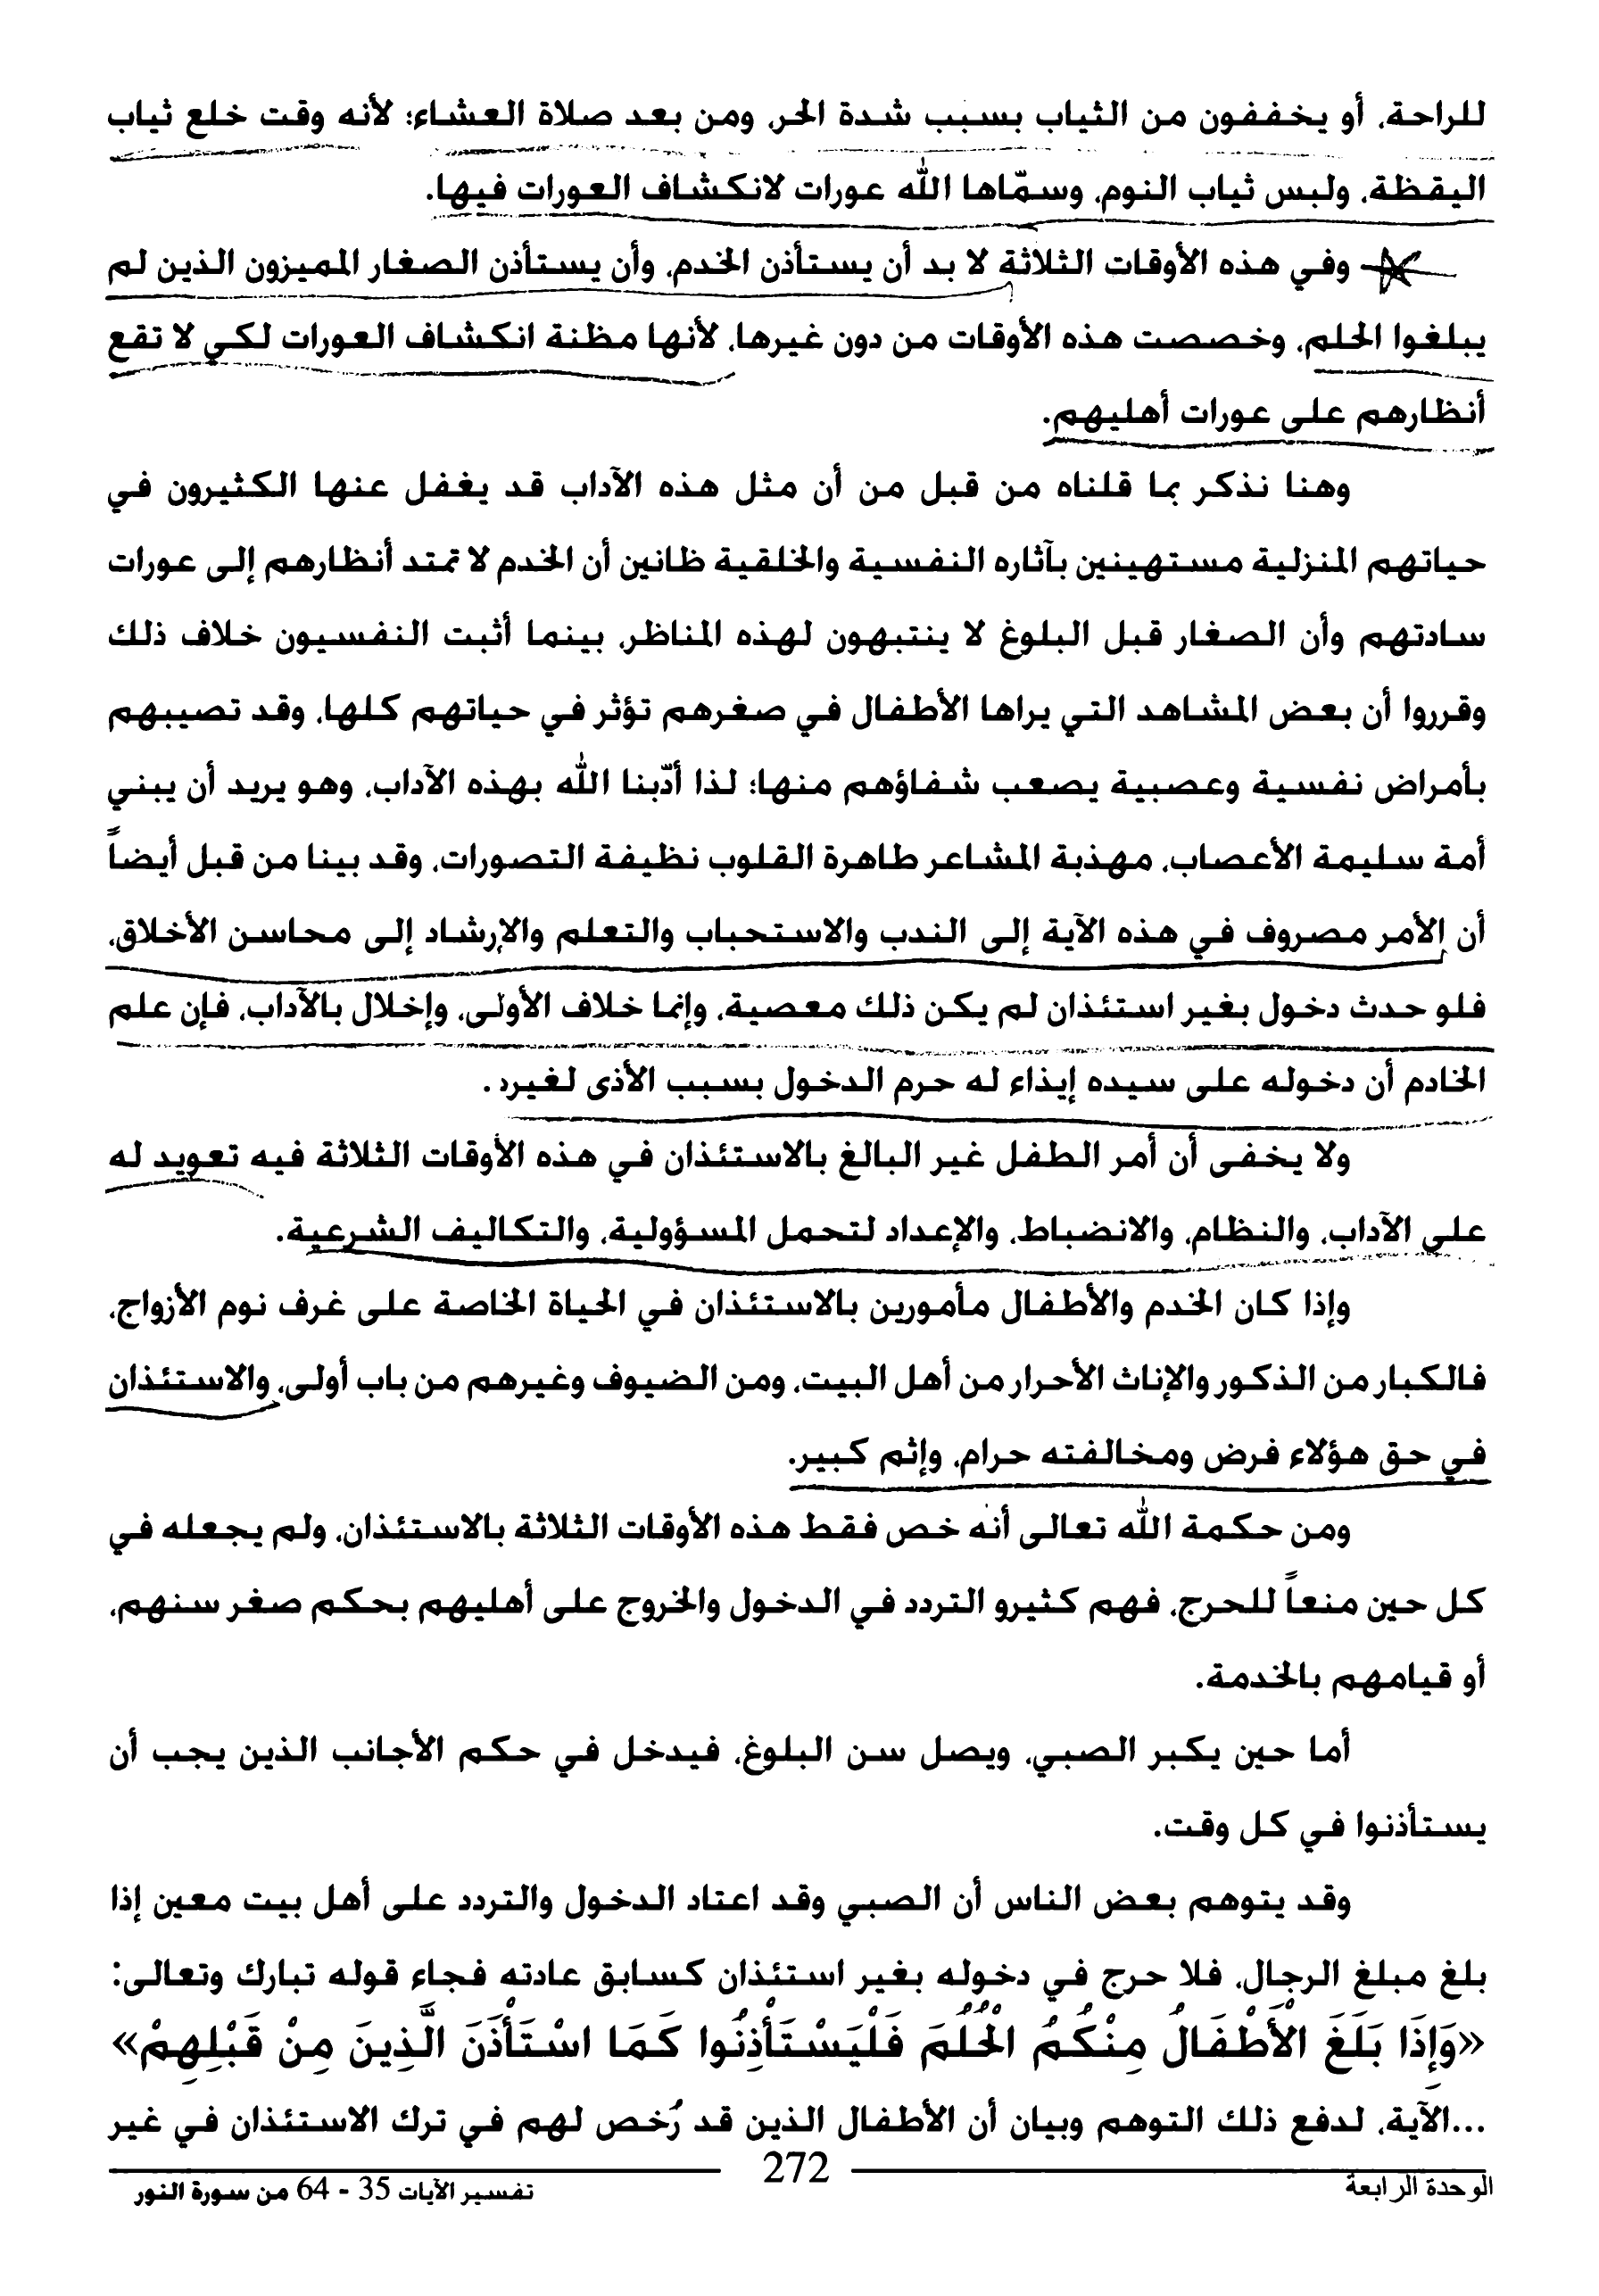 للراحة، أو يخففون من الثياب بسبب شدة الحر، ومن بعد صلاة العشاء؛ لأنه وقت خلع ثياب
اليقظة، ولبس ثياب النوم، وسمّاها الله عورات لانكشاف العورات فيها.
وفي هذه الأوقات الثلاثة لا بد أن يستأذن الخدم، وأن يستأذن الصغار المميزون الذين لم
يبلغوا الحلم، وخصصت هذه الأوقات من دون غيرها، لأنها مظنة انكشاف العورات لكي لا تقع
أنظارهم على عورات أهليهم.
وهنا نذكر بما قلناه من قبل من أن مثل هذه الآداب قد يغفل عنها الكثيرون في
حياتهم المنزلية مستهينين بآثاره النفسية والخلقية ظانين أن الخدم لا تمتد أنظارهم إلى عورات
سادتهم وأن الصغار قبل البلوغ لا ينتبهون لهذه المناظر، بينما أثبت النفسيون خلاف ذلك
وقرروا أن بعض المشاهد التي يراها الأطفال في صغرهم تؤثر في حياتهم كلها، وقد تصيبهم
بأمراض نفسية وعصبية يصعب شفاؤهم منها؛ لذا أدّبنا الله بهذه الآداب، وهو يريد أن يبني
أمة سليمة الأعصاب، مهذبة المشاعر طاهرة القلوب نظيفة التصورات، وقد بينا من قبل أيضاً
أن الأمر مصروف في هذه الآية إلى الندب والاستحباب والتعلم والإرشاد إلى محاسن الأخلاق،
فلو حدث دخول بغير استئذان لم يكن ذلك معصية، وإنما خلاف الأولى، وإخلال بالآداب، فإن علم
الخادم أن دخوله على سيده إيذاء له حرم الدخول بسبب الأذى لغيره.
ولا يخفى أن أمر الطفل غير البالغ بالاستئذان في هذه الأوقات الثلاثة فيه تعويد له
على الآداب، والنظام، والانضباط، والإعداد لتحمل المسؤولية، والتكاليف الشرعية.
وإذا كان الخدم والأطفال مأمورين بالاستئذان في الحياة الخاصة على غرف نوم الأزواج،
فالكبار من الذكور والإناث الأحرار من أهل البيت، ومن الضيوف وغيرهم من باب أولى، والاستئذان
في حق هؤلاء فرض ومخالفته حرام، وإثم كبير.
ومن حكمة الله تعالى أنه خص فقط هذه الأوقات الثلاثة بالاستئذان، ولم يجعله في
كل حين منعاً للحرج، فهم كثيرو التردد في الدخول والخروج على أهليهم بحكم صغر سنهم،
أو قيامهم بالخدمة.
أما حين يكبر الصبي، ويصل سن البلوغ، فيدخل في حكم الأجانب الذين يجب أن
يستأذنوا في كل وقت.
وقد يتوهم بعض الناس أن الصبي وقد اعتاد الدخول والتردد على أهل بيت معين إذا
بلغ مبلغ الرجال، فلا حرج في دخوله بغير استئذان كسابق عادته فجاء قوله تبارك وتعالى:
«وَإِذَا بَلَغَ الْأَطْفَالُ مِنْكُمُ الْحُلُمَ فَلْيَسْتَأْذِنُوا كَمَا اسْتَأْذَنَ الَّذِينَ مِنْ قَبْلِهِمْ»
...الآية، لدفع ذلك التوهم وبيان أن الأطفال الذين قد رُخص لهم في ترك الاستئذان في غير
الوحدة الرابعة 272 تفسير الآيات 35 - 64 من سورة النور